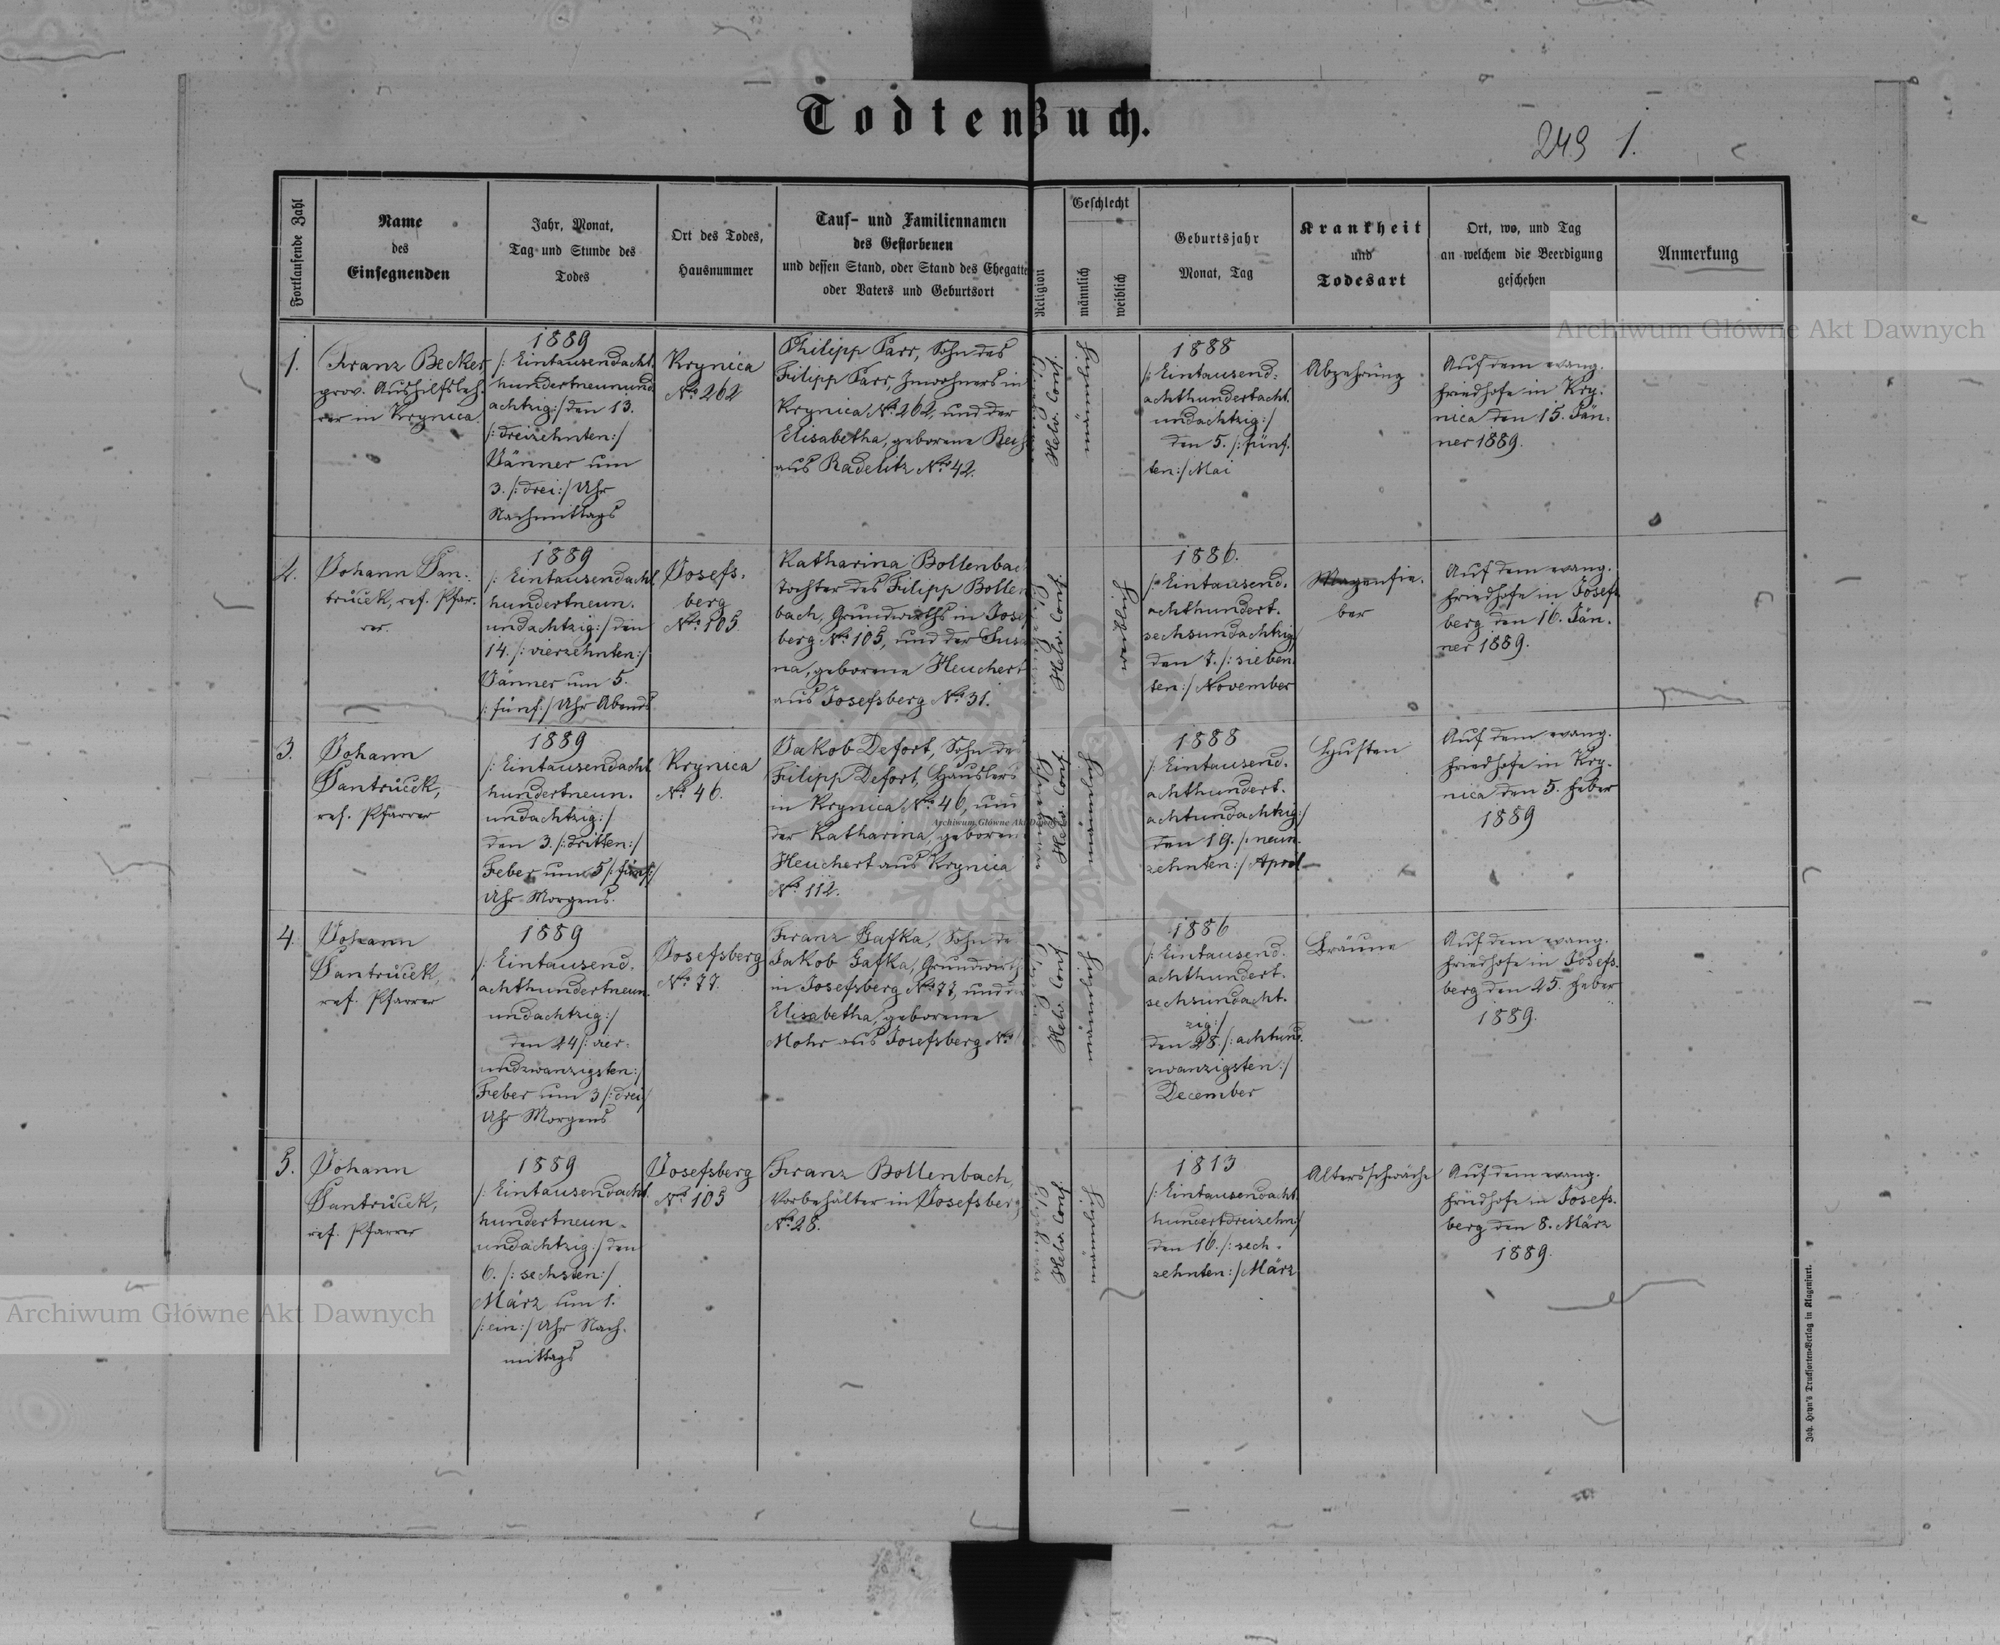 Todtenbuch.
249 1.
Fortlaufende Zahl
Name
des
Einsegnenden
Jahr, Monat,
Tag und Stunde des
Todes
Ort des Todes,
Hausnummer
Tauf- und Familiennamen
des Gestorbenen
und dessen Stand, oder Stand des Ehegatte
oder Vaters und Geburtsort
Religion
Geschlecht
männlich
weiblich
Geburtsjahr
Monat, Tag
Krankheit
und
Todesart
Ort, wo, und Tag
an welchem die Beerdigung
geschehen
Anmerkung
Archiwum Główne Akt Dawnych
1.
Franz Becker
prov. Aushilfsleh-
rer in Krynica
1889
/: Eintausendacht
hundertneunund
achtzig:/ den 13.
/:dreizehnten:/
Jänner um
3. /:drei:/ Uhr
Nachmittags
Krynica
No. 262
Philipp Parr, Sohn des
Filipp Parr, Inwohners in
Krynica No. 262, und der
Elisabetha, geborene
aus Radelitz No. 42.
Helv. Conf.
männlich
1888
/: Eintausend-
achthundertacht
undachtzig:/
den 5. /: fünf-
ten:/ Mai
Abzehrung
Auf dem evang.
Friedhofe in Kry-
nica den 15. Jän-
ner 1889.
2.
Johann San-
truček, ref. Pfar-
rer.
1889
/: Eintausendacht
hundertneun-
undachtzig:/ den
14. /: vierzehnten:/
Jänner um 5.
/: fünf:/ Uhr Abends
Josefs-
berg
No. 105.
Katharina Bollenbac
Tochter des Filipp Bollen
bach, Grundwirths in Josef
berg No. 105, und der Sus
na, geborene Heuchert
aus Josefsberg No. 31.
Helv. Conf.
weiblich
1886.
/: Eintausend-
achthundert-
sechsundachtzig
den 7. /: sieben-
ten:/ November
Magenfie-
ber
Auf dem evang.
Friedhofe in Josefs
berg den 16. Jän-
ner 1889.
3.
Johann
Santruček,
ref. Pfarrer
1889
/: Eintausendacht
hundertneun-
undachtzig:/
den 3. /:dritten:/
Feber um 5/: fünf:/
Uhr Morgens.
Krynica
No. 46.
Jakob Defort, Sohn de
Filipp Defort, Häuslers
in Krynica No. 46, und
der Katharina, geboren
Heuchert aus Krynica
No. 112.
Archiwum Główne Akt Dawnych
Helv. Conf.
männlich
1888
/: Eintausend-
achthundert-
achtundachtzig:/
den 19. /: neun-
zehnten:/ April
Husten
Auf dem evang.
Friedhofe in Kry-
nica den 5. Feber
1889
4.
Johann
Santruček,
ref. Pfarrer
1889
/: Eintausend-
achthundertneun-
undachtzig:/
den 24/: vier-
undzwanzigsten:/
Feber um 3/:drei:/
Uhr Morgens
Josefsberg
No. 77.
Franz Gafka, Sohn de
Jakob Gafka, Grundwirth
in Josefsberg No. 77, und
Elisabetha, geborene
Mohr aus Josefsberg No.
Helv. Conf.
männlich
1886
/: Eintausend-
achthundert-
sechsundacht-
zig:/
den 28. /: achtund-
zwanzigsten:/
December
Bräune
Auf dem evang.
Friedhofe in Josefs-
berg den 25. Feber
1889.
5.
Johann
Santruček,
ref. Pfarrer
1889
/: Eintausendacht
hundertneun-
undachtzig:/ den
6. /: sechsten:/
März um 1.
/:ein:/ Uhr Nach-
mittags
Josefsberg
No. 105
Franz Bollenbach,
Vorbehälter in Josefsberg
No. 28.
Helv. Conf.
männlich
1813
/: Eintausendacht
hundertdreizehn:/
den 16. /: sech-
zehnten:/ März
Altersschwäche
Auf dem evang.
Friedhofe in Josefs-
berg den 8. März
1889.
Joh. Heyn's Drucksorten-Verlag in Klagenfurt.
Archiwum Główne Akt Dawnych